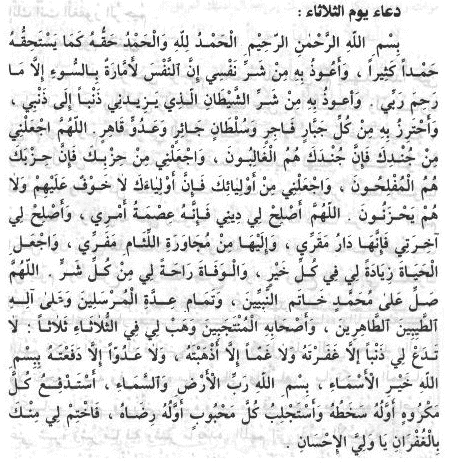 دعاء يوم الثلاثاء :
بِسْمِ اللهِ الرَّحْمٰنِ الرَّحِيْمِ الْحَمْدُ لِلّٰهِ وَالْحَمْدُ حَقُّهُ كَمَا يَسْتَحِقُّهُ
حَمْداً كَثِيْراً ، وَأَعُوذُ بِهِ مِنْ شَرِّ نَفْسِي إِنَّ النَّفْسَ لَأَمَّارَةٌ بِالسُّوءِ إِلَّا مَا
رَحِمَ رَبِّي . وَأعوذُ بِهِ مِنْ شَرِّ الشَّيْطَانِ الَّذِي يَزِيدُنِي ذَنْباً إِلَى ذَنْبِي ،
وَأَحْتَرِزُ بِهِ مِنْ كُلِّ جَبَّارٍ فَاجِرٍ وَسُلْطَانٍ جَائِرٍ وَعَدُوٍّ قَاهِرٍ . اللّٰهُمَّ اجْعَلْنِي
مِنْ جُنْدِكَ فَإِنَّ جُنْدَكَ هُمُ الْغَالِبُونَ ، وَاجْعَلْنِي مِنْ حِزْبِكَ فَإِنَّ حِزْبَكَ
هُمُ الْمُفْلِحُونَ ، وَاجْعَلْنِي مِنْ أَوْلِيَائِكَ فَإِنَّ أَوْلِيَاءَكَ لَا خَوْفٌ عَلَيْهِمْ وَلَا
هُمْ يَحْزَنُونَ . اللّٰهُمَّ أَصْلِحْ لِي دِينِي فَإِنَّهُ عِصْمَةُ أَمْرِي ، وَأَصْلِحْ لِي
آخِرَتِي فَإِنَّهَا دَارُ مَقَرِّي ، وَإِلَيْهَا مِنْ مُجَاوَرَةِ اللِّئَامِ مَفَرِّي ، وَاجْعَلِ
الْحَيَاةَ زِيَادَةً لِي فِي كُلِّ خَيْرٍ ، وَالْوَفَاةَ رَاحَةً لِي مِنْ كُلِّ شَرٍّ . اللّٰهُمَّ
صَلِّ عَلَىٰ مُحَمَّدٍ خَاتَمِ النَّبِيِّيْنَ ، وَتَمَامِ عِدَّةِ الْمُرْسَلِينَ وَعَلَى آلِهِ
الطَّيِّبِينَ الطَّاهِرِينَ ، وَأَصْحَابِهِ الْمُنْتَجَبِينَ وَهَبْ لِي فِي الثُّلَاثَاءِ ثَلَاثاً : لَا
تَدَعْ لِي ذَنْباً إِلَّا غَفَرْتَهُ وَلَا غَمّاً إِلَّا أَذْهَبْتَهُ ، وَلَا عَدُوّاً إِلَّا دَفَعْتَهُ بِبِسْمِ
اللهِ خَيْرِ الْأَسْمَاءِ ، بِسْمِ اللهِ رَبِّ الْأَرْضِ وَالسَّمَاءِ ، أَسْتَدْفِعُ كُلَّ
مَكْرُوهٍ أَوَّلُهُ سَخَطُهُ وَأَسْتَجْلِبُ كُلَّ مَحْبُوبٍ أَوَّلُهُ رِضَاهُ ، فَاخْتِمْ لِي مِنْكَ
بِالْغُفْرَانِ يَا وَلِيَّ الْإِحْسَانِ .